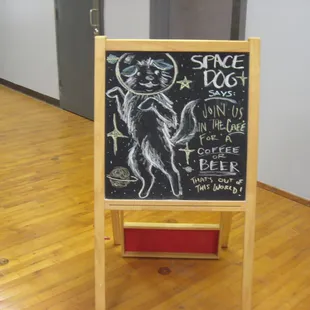 SPACE
DOG
SAYS:
JOIN US
IN THE CAFÉ
FOR A
COFFEE
OR
BEER
THAT'S OUT OF
THIS WORLD!